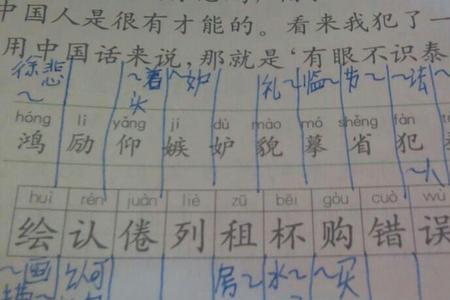 中国人是很有才能的。看来我犯了一
用中国话来说，那就是‘有眼不识泰
徐悲 ～着 ～妒 礼～ 临～ 节～ ～法
～ 头
hóng lì yǎng jí dù mào mó shěng fàn
鸿 励 仰 嫉 妒 貌 摹 省 犯
～人
huì rèn juàn liè zū bēi gòu cuò wù
绘 认 倦 列 租 杯 购 错 误
～画 认可 房～ 水～ ～买